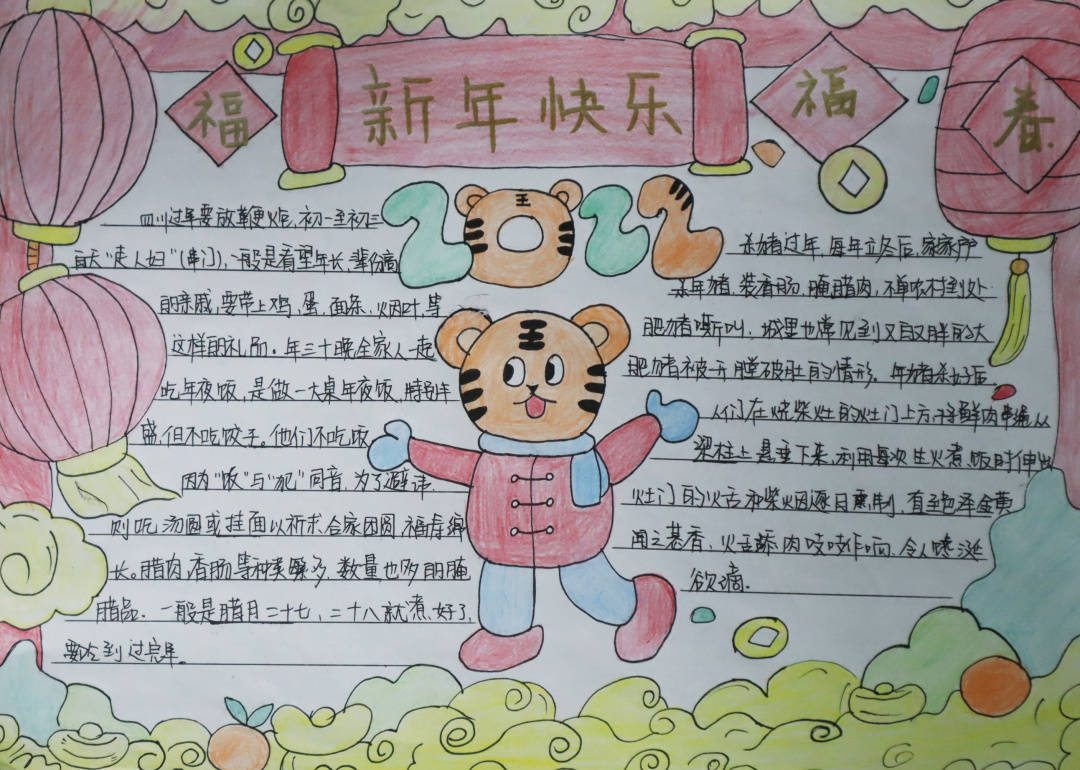 福
新年快乐
福
春
2022
王
王
四川过年要放鞭炮,初一至初三
每天"走人妇"(串门),一般是看望年长,辈份高
的亲戚,要带上鸡,蛋,面条,烟叶,等
这样的礼品。年三十晚全家人一起
吃年夜饭,是做一大桌年夜饭,特别丰
盛,但不吃饺子。他们不吃饭
因为"饭"与"犯"同音,为了避讳,
则吃汤圆或挂面以祈求合家团圆,福寿绵
长。腊肉,香肠等种类繁多,数量也多的腌
腊品.一般是腊月二十七,二十八就煮好了,
要吃到过完年。
杀猪过年,每年立冬后,家家户
杀年猪,装香肠,腌腊肉,不单农村到处
肥猪嘶叫,城里也常见到又白又胖的大
肥猪被开膛破肚的情形,年猪杀好后,
人们在烧柴灶的灶门上方将鲜肉串绳从
梁柱上悬垂下来,利用每次生火煮饭时伸出
灶门的火舌和柴烟逐日熏制,直至色泽金黄
闻之甚香,火舌舔肉吱吱作响,令人馋涎
欲滴.